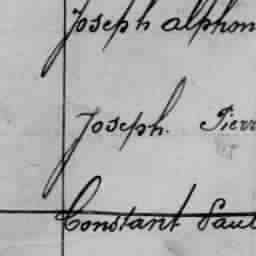 Joseph alphon
Joseph. Pierr
Constant Paul